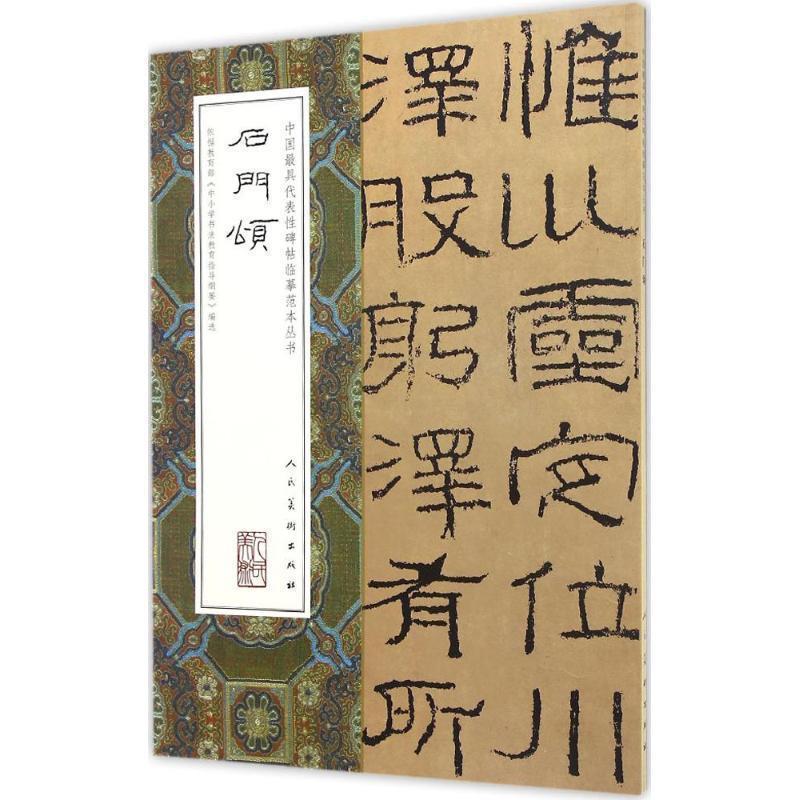 惟巛靈定位川
澤股躬澤有所
中国最具代表性碑帖临摹范本丛书
石門頌
依据教育部《中小学书法教育指导纲要》编选
人民美術出版社